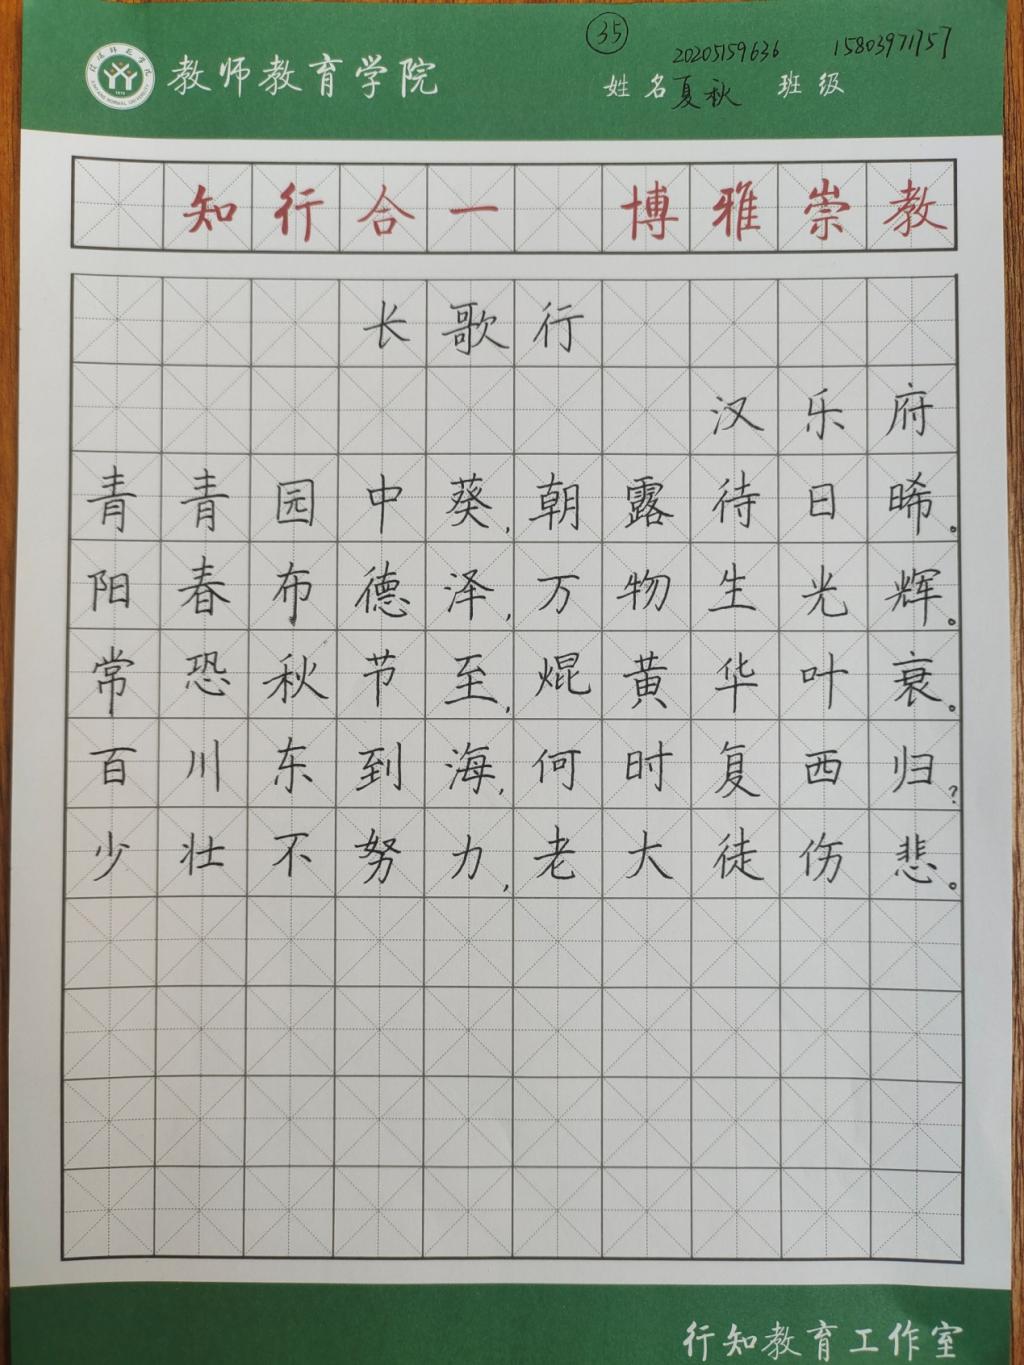 ㉟
20205159636 15803971757
教师教育学院 姓名 夏秋 班级
知行合一 博雅崇教
长歌行
汉乐府
青青园中葵,朝露待日晞。
阳春布德泽,万物生光辉。
常恐秋节至,焜黄华叶衰。
百川东到海,何时复西归?
少壮不努力,老大徒伤悲。
行知教育工作室